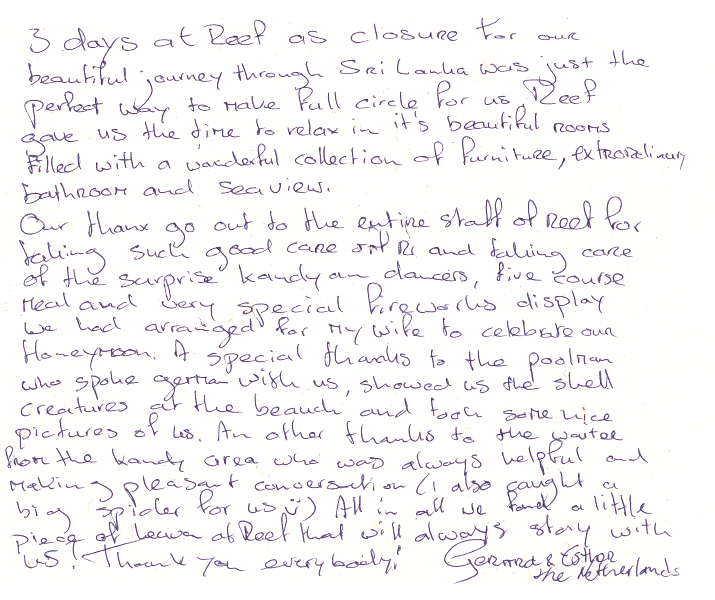 3 days at Reef as closure for our
beautiful journey through Sri Lanka was just the
perfect way to make full circle for us. Reef
gave us the time to relax in it's beautiful rooms
filled with a wonderful collection of furniture, extraordinary
bathroom and seaview.
Our thanx go out to the entire staff of Reef for
taking such good care of us and taking care
of the surprise kandyan dancers, five course
meal and very special fireworks display
we had arranged for my wife to celebrate our
Honeymoon. A special thanks to the poolman
who spoke german with us, showed us the shell
creatures at the beauch and took some nice
pictures of us. An other thanks to the waiter
from the kandy area who was always helpful and
making pleasant conversation (i also caught a
big spider for us ü) All in all we found a little
piece of heaven at Reef that will always stay with
us! Thank you everybody!
Gerard & Esther
the Netherlands